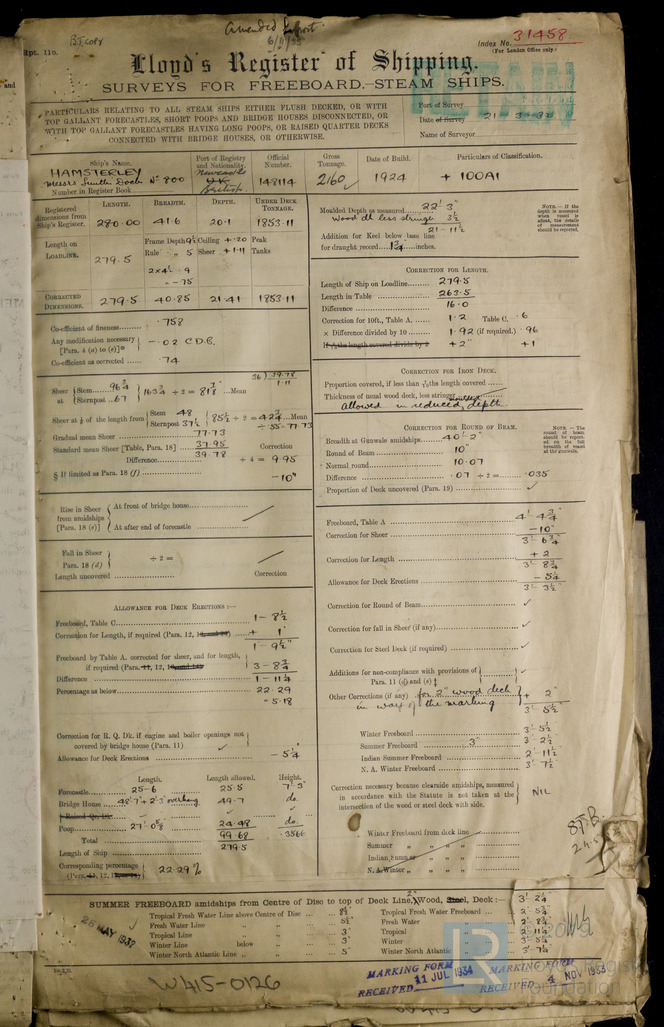 Amended Report
6/11/33
B.T. copy
Rpt. 11c.
Index No. 31458
(For London Office only.)
Lloyd's Register of Shipping.
SURVEYS FOR FREEBOARD.—STEAM SHIPS.
RETAIN
PARTICULARS RELATING TO ALL STEAM SHIPS EITHER FLUSH DECKED, OR WITH
TOP GALLANT FORECASTLES, SHORT POOPS AND BRIDGE HOUSES DISCONNECTED, OR
WITH TOP GALLANT FORECASTLES HAVING LONG POOPS, OR RAISED QUARTER DECKS
CONNECTED WITH BRIDGE HOUSES, OR OTHERWISE.
Port of Survey
Date of Survey
Name of Surveyor
Ship's Name.
HAMSTERLEY
Messrs Smith Dock No 800
Number in Register Book
Port of Registry and Nationality.
Newcastle
British
Official Number.
148114
Gross Tonnage.
2160
Date of Build.
1924
Particulars of Classification.
+ 100A1
LENGTH. BREADTH. DEPTH. UNDER DECK TONNAGE.
Registered dimensions from Ship's Register. 280.00 41.6 20.1 1853.11
Length on LOADLINE. 279.5
Frame Depth 9½ Ceiling + .20 Peak
Rule „ 5 Sheer + 1.11 Tanks
2 x 4½ = 9
= .75
CORRECTED DIMENSIONS. 279.5 40.85 21.41 1853.11
Co-efficient of fineness .758
Any modification necessary [Para. 4 (a) to (e)]* - .02 C.D.B.
Co-efficient as corrected .74
36) 39.78
1.11
Sheer at { Stem 96¾ Sternpost 67 } 163¾ ÷ 2 = 81⅞ Mean
Sheer at ⅛ of the length from { Stem 48 Sternpost 37½ } 85½ ÷ 2 = 42¾ Mean
÷ .55 = 77.73
Gradual mean Sheer 77.73
Standard mean Sheer [Table, Para. 18] 37.95
Correction
Difference 39.78 ÷ 4 = 9.95
§ If limited as Para. 18 (f) -10"
Rise in Sheer from amidships [Para. 18 (e)] { At front of bridge house
At after end of forecastle
Fall in Sheer Para. 18 (d) ÷ 2 =
Length uncovered Correction
ALLOWANCE FOR DECK ERECTIONS :—
Freeboard, Table C 1 - 8½
Correction for Length, if required (Para. 12, 13, and 14) + 1"
1 - 9½"
Freeboard by Table A, corrected for sheer, and for length, if required (Para. 11, 12, 13, and 14) 3 - 8¾
Difference 1 - 11¼
Percentage as below 22.29
= 5.18
Correction for R. Q. Dk. if engine and boiler openings not covered by bridge house (Para. 11)
Allowance for Deck Erections - 5¼
Length. Length allowed. Height.
Forecastle 25-6 25.5 7' 3"
Bridge House 48'-7" + 2'-3" overhang 49.7 do
† Raised Qr. Dk.
Poop 27'-0⅝ 24.48 do.
Total 99.68 .3566
Length of Ship 279.5
Corresponding percentage (Para. 11, 12, 13, and 14) 22.29%
Moulded Depth as measured 22' 3"
Wood dk less stringer 3½
21 - 11½
Addition for Keel below base line for draught record 1¾ inches.
NOTE.—If the depth is measured when vessel is afloat, the details of measurement should be reported.
CORRECTION FOR LENGTH.
Length of Ship on Loadline 279.5
Length in Table 263.5
Difference 16.0
Correction for 10ft., Table A. 1.2 Table C. .6
× Difference divided by 10 1.92 (if required.) .96
If ⁶⁄₁₀ths length covered divide by 2 + 2" + 1
CORRECTION FOR IRON DECK.
Proportion covered, if less than ⁷⁄₁₀ths length covered
Thickness of usual wood deck, less stringer
allowed in reduced depth
CORRECTION FOR ROUND OF BEAM.
Breadth at Gunwale amidships 40'-2"
Round of Beam 10"
Normal round 10.07
Difference .07 ÷ 2 = .035
Proportion of Deck uncovered (Para. 19)
NOTE.—The round of beam should be reported on the full breadth of vessel at the gunwale.
Freeboard, Table A 4' 4¾"
Correction for Sheer -10"
3' 6¾"
Correction for Length + 2
3' 8¾
Allowance for Deck Erections - 5¼
3' 3½"
Correction for Round of Beam
Correction for fall in Sheer (if any)
Correction for Steel Deck (if required)
Additions for non-compliance with provisions of Para. 11 (d) and (e) ‡
Other Corrections (if any) for 2" wood deck + 2"
in way of the marking 3' 5½
Winter Freeboard 3' 5½
Summer Freeboard 3" 3' 2½
Indian Summer Freeboard 2' 11½
N. A. Winter Freeboard 3' 7½
Correction necessary because clearside amidships, measured in accordance with the Statute is not taken at the intersection of the wood or steel deck with side. NIL
Winter Freeboard from deck line
Summer „ „ „
Indian Summer „ „ „
N. A. Winter „ „ „
SUMMER FREEBOARD amidships from Centre of Disc to top of Deck Line, 2" Wood, Steel, Deck :— 3' 2¼
Tropical Fresh Water Line above Centre of Disc 8½ Tropical Fresh Water Freeboard 2' 5¾
Fresh Water Line „ „ 5½ Fresh Water „ 2' 8¾
Tropical Line „ „ 3" Tropical „ 2' 11¼
Winter Line below „ 3" Winter „ 3' 5¼
Winter North Atlantic Line „ „ 5" Winter North Atlantic „ 3' 7¼
W415-0126
MARKING FORM
RECEIVED 11 JUL 1934
MARKING FORM
RECEIVED 4 NOV 1933
LR
Foundation